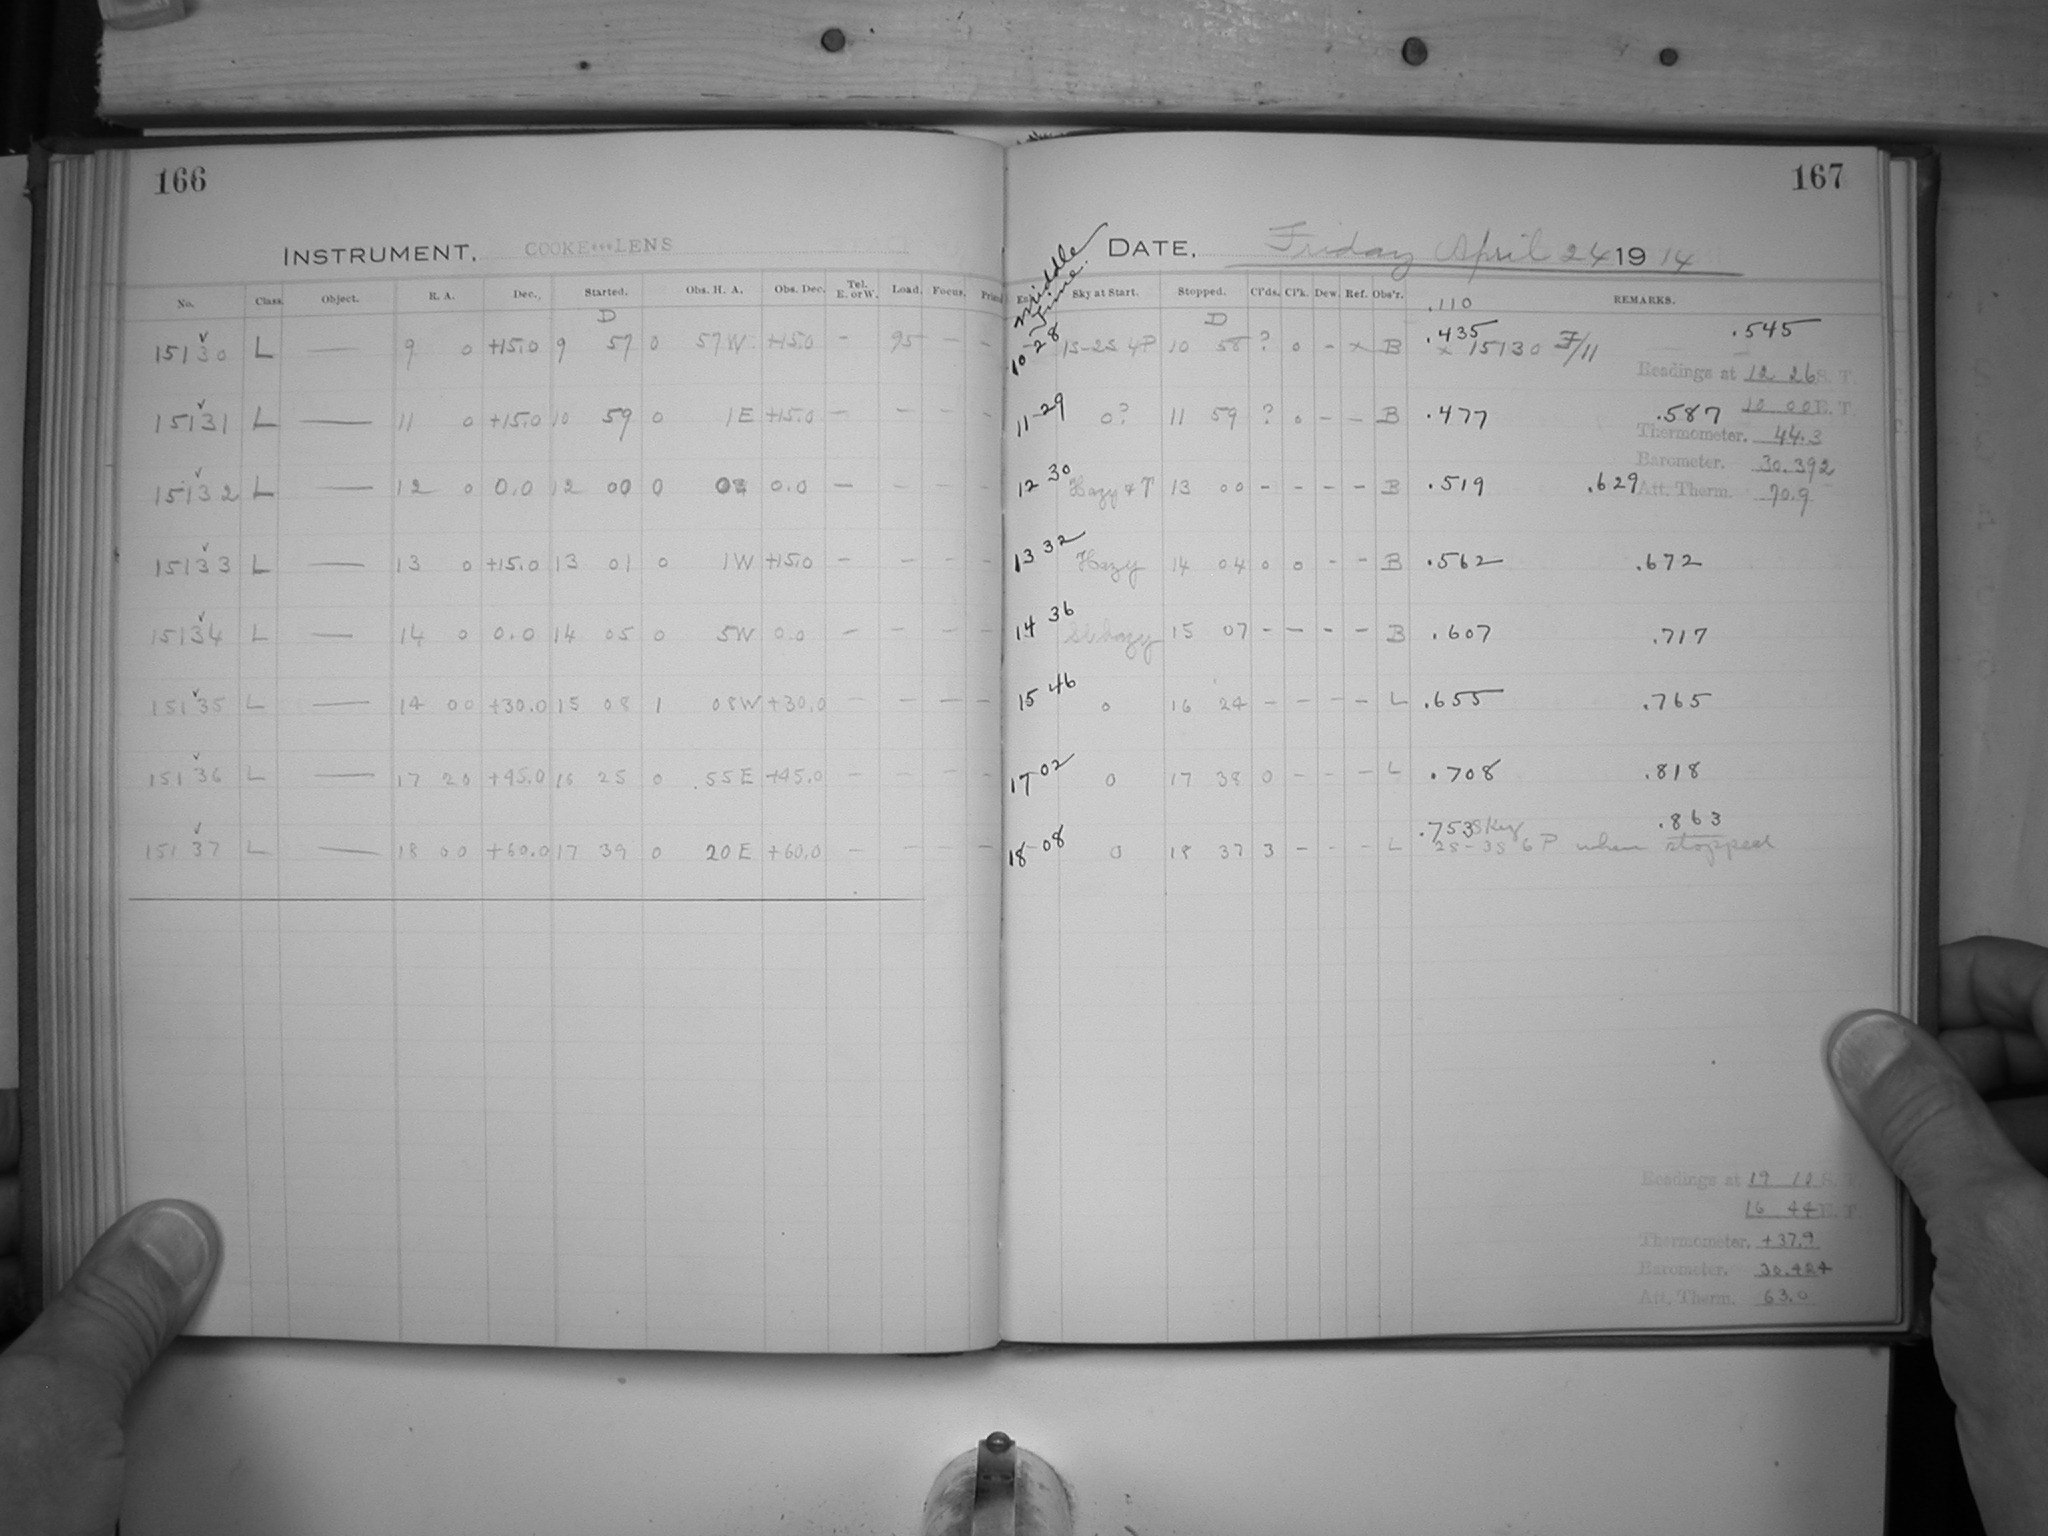 166
INSTRUMENT, COOKE LENS
No. Class. Object. R. A. Dec., Started. Obs. H. A. Obs. Dec. Tel. E. or W. Load. Focus.
D
15130 L — 9 0 +15.0 9 57 0 57W +15.0 - 95 - -
15131 L — 11 0 +15.0 10 59 0 1E +15.0 - - - -
15132 L — 12 0 0.0 12 00 0 0.0 - - - -
15133 L — 13 0 +15.0 13 01 0 1W +15.0 - - - -
15134 L — 14 0 0.0 14 05 0 5W 0.0 - - - -
15135 L — 14 00 +30.0 15 08 1 08W +30.0 - - - -
15136 L — 17 20 +45.0 16 25 0 55E +45.0 - - - -
15137 L — 18 00 +60.0 17 39 0 20E +60.0 - - - -
167
DATE, Friday April 24 1914
Middle Time.
Sky at Start. Stopped. Cl'ds. Cl'k. Dew. Ref. Obs'r. REMARKS.
.110
D
10-28 1S-2S 4P 10 58 ? 0 - x B .435 .545
x 15130 F/11
Readings at 12 26 S. T.
10 00 E. T.
11-29 0? 11 59 ? 0 - - B .477 .587
Thermometer. 44.3
Barometer. 30.392
12 30 Hazy & T 13 00 - - - - B .519 .629
Att. Therm. 70.9
13 32 Hazy 14 04 0 0 - - B .562 .672
14 36 Sl hazy 15 07 - - - - B .607 .717
15 46 0 16 24 - - - - L .655 .765
17-02 0 17 38 0 - - - L .708 .818
18-08 0 18 37 3 - - - L .753 .863
Sky 2S-3S 6P when stopped
Readings at 19 12 S. T.
16 44 E. T.
Thermometer. +37.9
Barometer. 30.424
Att. Therm. 63.0